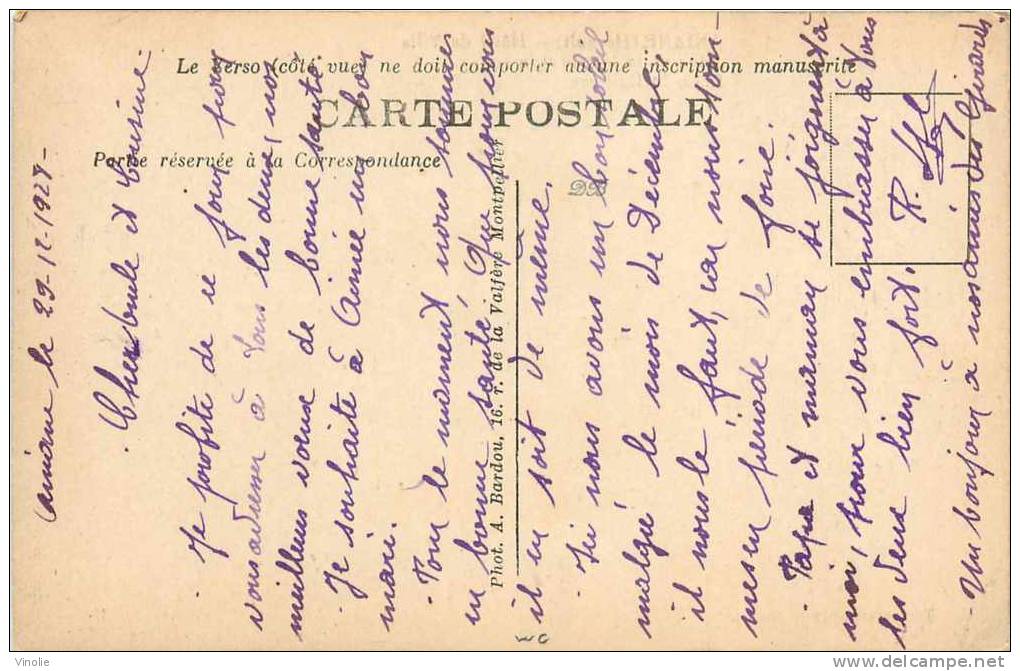 Le Verso (côté vue) ne doit comporter aucune inscription manuscrite
CARTE POSTALE
Partie réservée à la Correspondance
DB
Phot. A. Bardou, 16. r. de la Valfère Montpellier
Aniane le 29-12-1927-
Cher Oncle et Cousine
Je profite de ce jour pour
vous adresser à tous les deux, mes
meilleurs voeux de bonne santé
Je souhaite à Aimée un bon
mari.
Pour le moment nous sommes
en bonne santé, que pour vous
il en soit de même.
Ici nous avons un bon soleil
malgré le mois de Décembre
il nous le faut, car nous sommes
en période de foire.
Papa et maman se joignent à
moi, pour vous embrasser à tous
les deux bien fort.
R.
Un bonjour à nos amis des Girards.
WG
Vinolie
http://www.delcampe.net